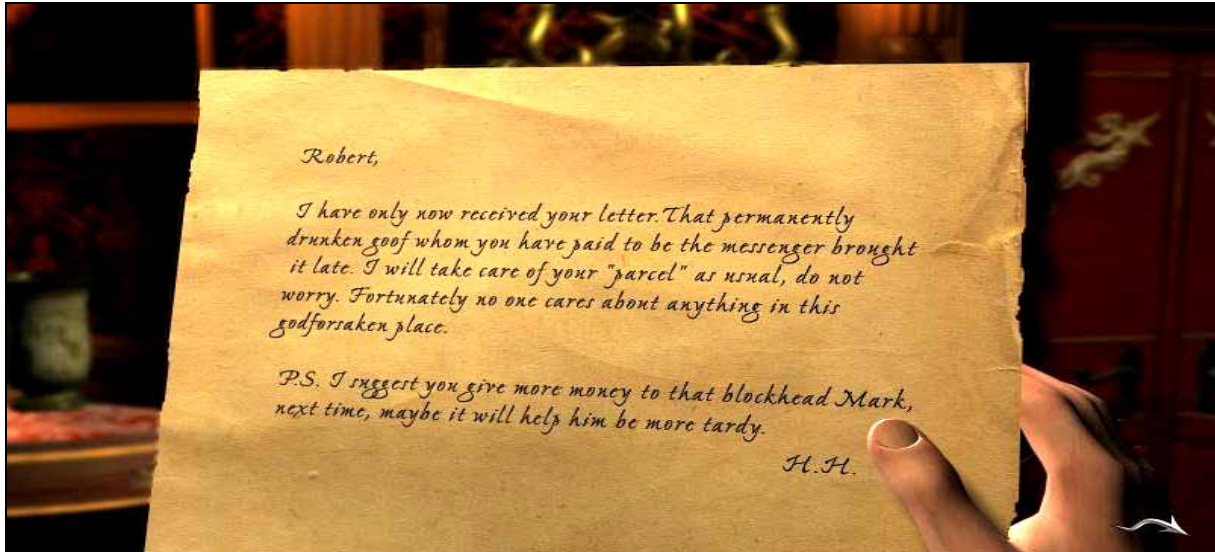 Robert,
I have only now received your letter.That permanently
drunken goof whom you have paid to be the messenger brought
it late. I will take care of your "parcel" as usual, do not
worry. Fortunately no one cares about anything in this
godforsaken place.
P.S. I suggest you give more money to that blockhead Mark,
next time, maybe it will help him be more tardy.
H.H.